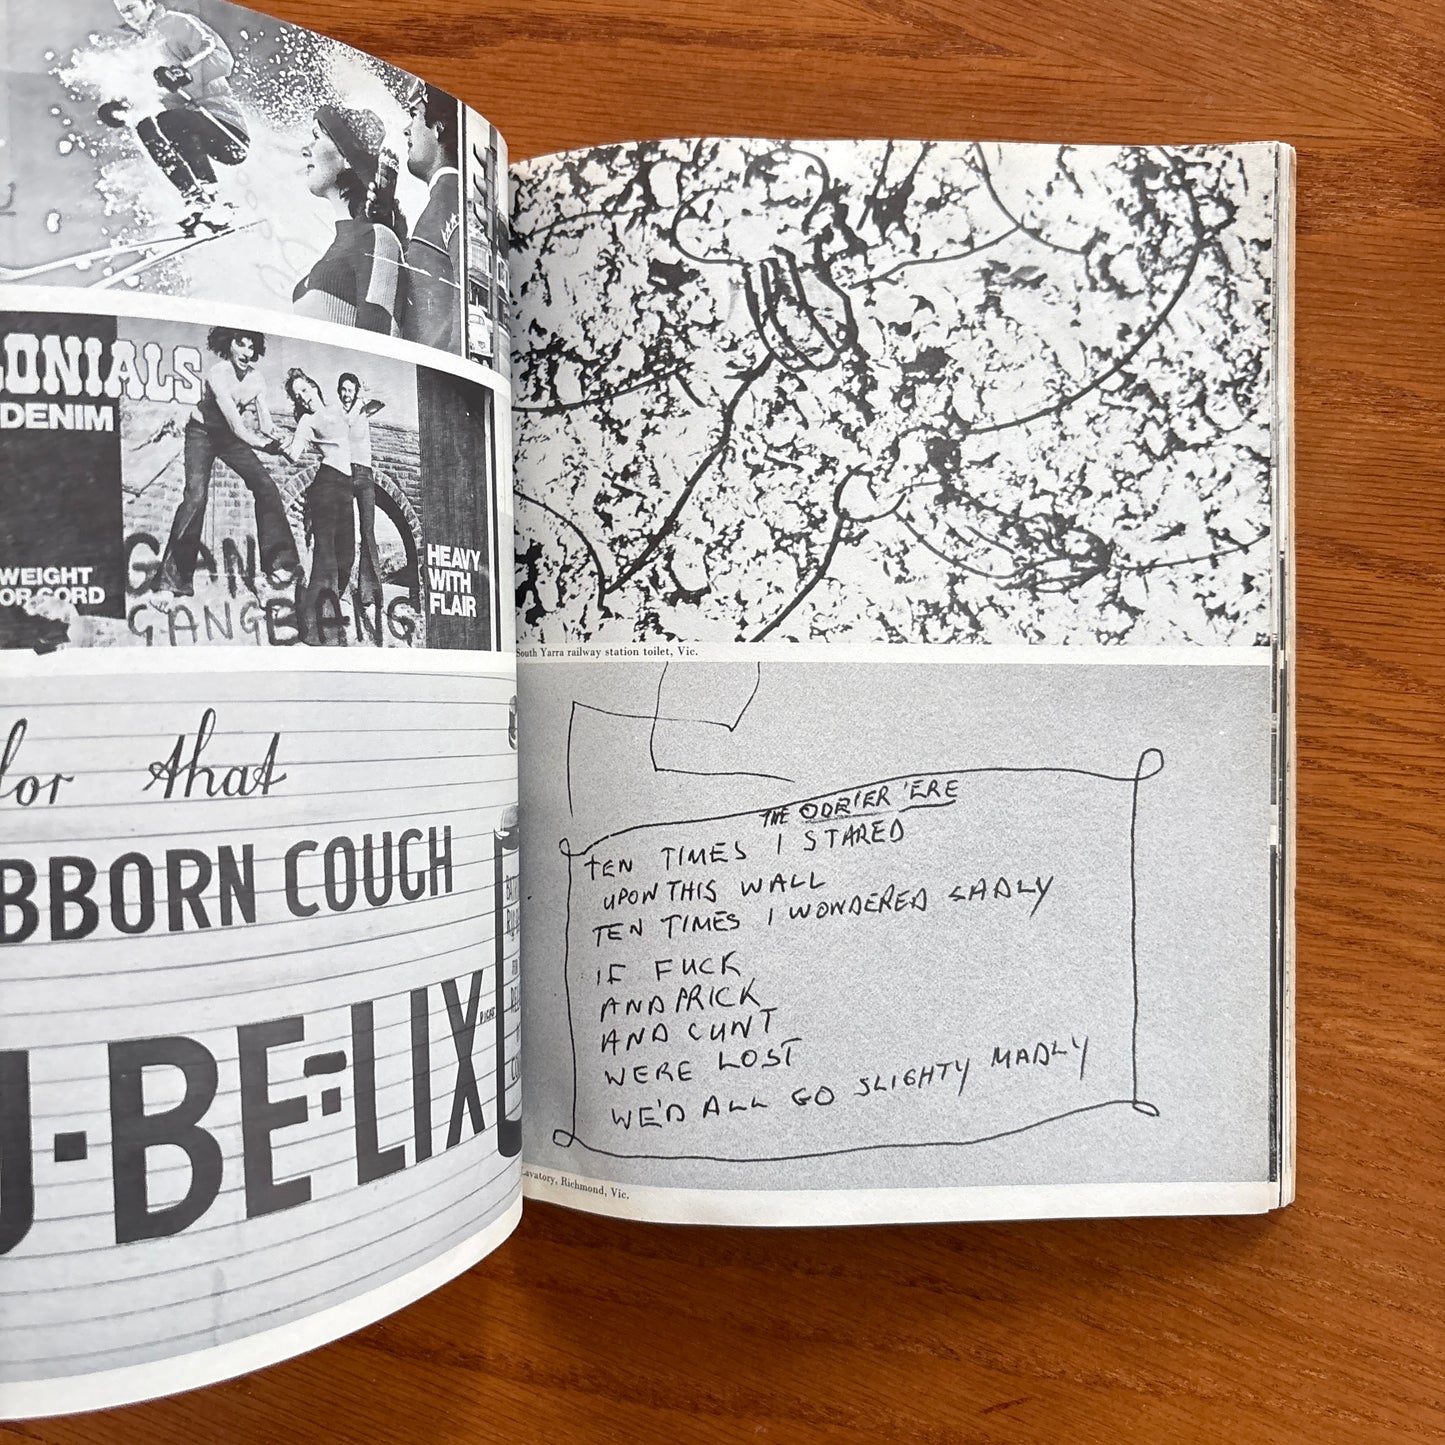 ONIALS
DENIM
WEIGHT
OR CORD
HEAVY
WITH
FLAIR
GANG
GANGBANG
for that
BBORN COUGH
U·BE:LIX
South Yarra railway station toilet, Vic.
THE ODZ'ER 'ERE
TEN TIMES I STARED
UPON THIS WALL
TEN TIMES I WONDERED SADLY
IF FUCK
AND PRICK
AND CUNT
WERE LOST
WE'D ALL GO SLIGHTY MADLY
Lavatory, Richmond, Vic.